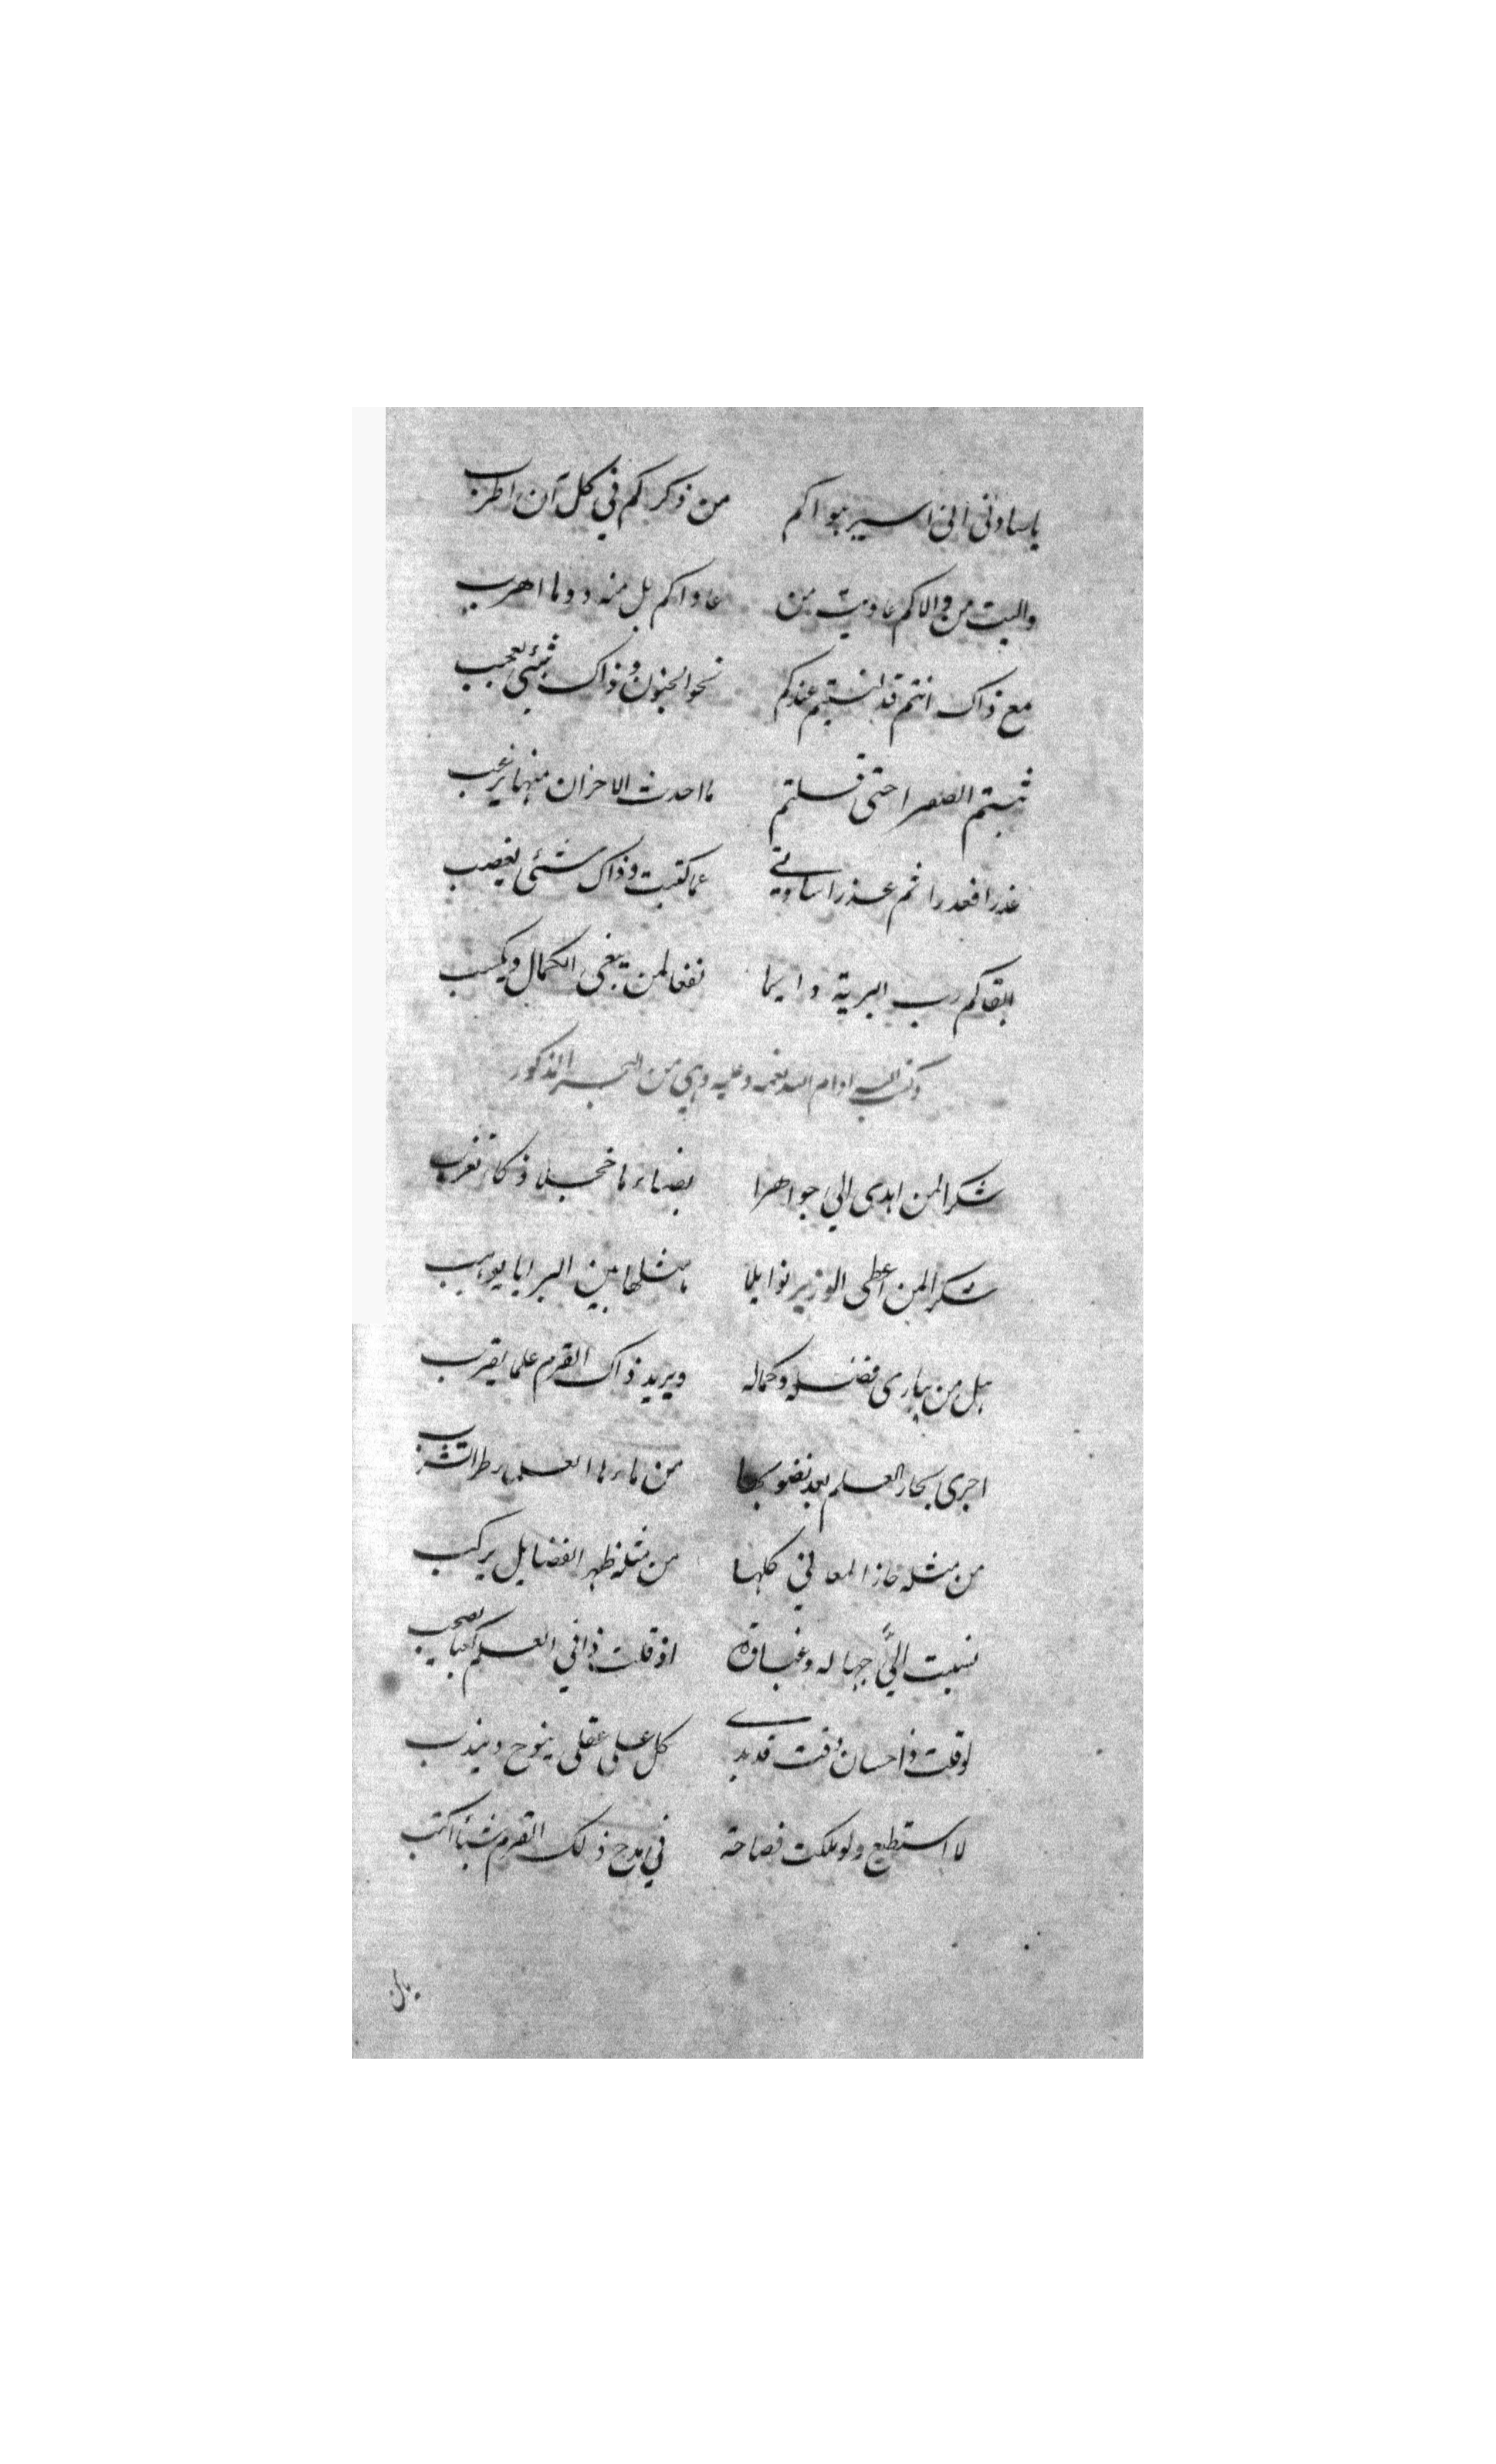 ياسادتي اني اسير هواكم من ذكركم في كل آن اطرب
واليت من والاكم عاديت من عاداكم بل منه دوما اهرب
مع ذاك انتم قد نسبتم عندكم نحو الجنون وذاك شيئي يعجب
ثبتم الصفرا حتى قلتم ما احدث الاحزان منهما يرغب
عذرا فعذرا ثم عذرا سادتي عما كتبت وذاك شئي يغصب
ابقاكم رب البرية دايما نفعا لمن يبغي الكمال ويكسب
وكتب اليه ادام الله نعمه وعليه وهي من البحر المذكور
شكرا لمن اهدى الي جواهرا بضيائها خجلا ذكاء تغرب
شكرا لمن اعطى الوزير نوايلا ما مثلها بين البرايا يوهب
هل من يباري فضله وكماله ويريد ذاك القرم علما يقرب
اجرى بحار العلم بعد نضوبها من مائها العلماء طرا تشرب
من مثله حاز المعاني كلها من مثله ظهر الفضايل يركب
نسبت اليَّ جهاله وغباوة اذ قلت ذا في العلم كعبا يصحب
لو قلت ذا حسان وقت قد بدى كل على عقلي ينوح ويندب
لا استطيع ولو ملكت فصاحة في مدح ذلك القرم شيئا اكتب